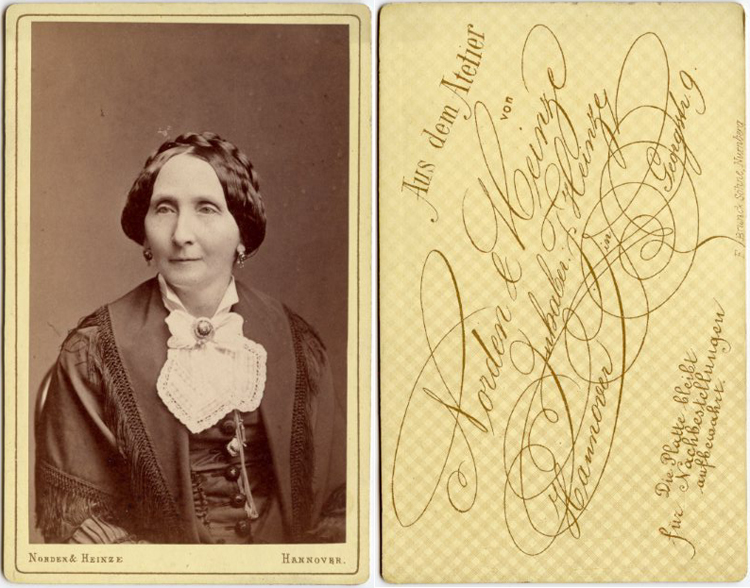 NORDEN & HEINZE
HANNOVER.
Aus dem Atelier
von
Norden & Heinze
Inhaber: F. Heinze
in
Hannover
Georgstr. 9.
Die Platte bleibt
für Nachbestellungen
aufbewahrt.